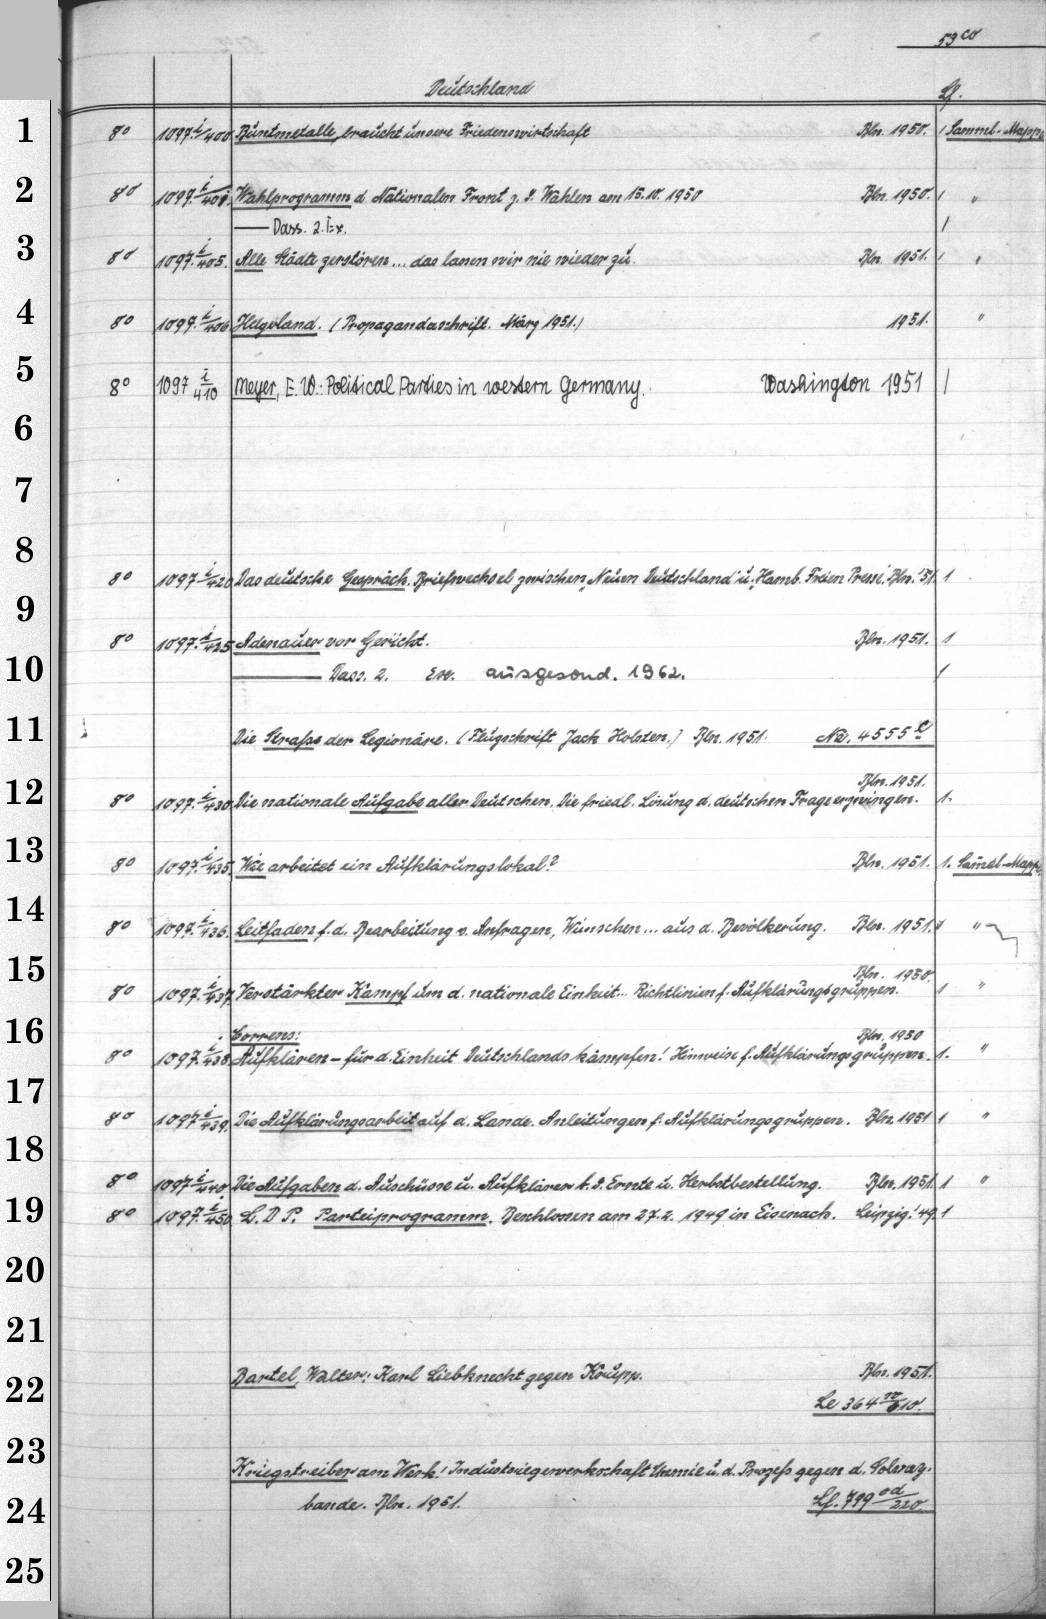 53 co
Deutschland Lf.
1 8° 1097. i/400 Buntmetalle, braucht unsere Friedenswirtschaft Bln. 1950. 1 Sammel-Mappe
2 8° 1097. i/401. Wahlprogramm d. Nationalen Front z. d. Wahlen am 15.10.1950 Bln. 1950. 1 "
—— Dass. 2. Ex. 1
3 8° 1097. i/405. Alle Städte zerstören... das lassen wir nie wieder zu. Bln. 1951. 1 "
4 8° 1097. i/406 Helgoland. (Propagandaschrift. März 1951.) 1951. "
5 8° 1097 i/410 Meyer, E. W.: Political Parties in western Germany. Washington 1951 1
6
7
8 8° 1097 i/420 Das deutsche Gespräch. Briefwechsel zwischen „Neuen Deutschland" u. „Hamb. Freien Presse". Bln. '51. 1
9 8° 1097. i/425 Adenauer vor Gericht. Bln. 1951. 1
10 —— Dass. 2. Ex. ausgesond. 1962. 1
11 Die Strafse der Legionäre. (Flugschrift Jack Holsten.) Bln. 1951. 4555 e
12 Bln. 1951.
8° 1097. i/430 Die nationale Aufgabe aller Deutschen. Die friedl. Lösung d. deutschen Frage erzwingen. 1.
13 8° 1097. i/435. Wie arbeitet ein Aufklärungslokal? Bln. 1951. 1. Sam̄el-Mappe.
14 8° 1097. i/436. Leitfaden f. d. Bearbeitung v. Anfragen, Wünschen... aus d. Bevölkerung. Bln. 1951. 1 "
15 Bln. 1950.
8° 1097. i/437. Verstärkter Kampf um d. nationale Einheit... Richtlinien f. Aufklärungsgruppen. 1 "
16 Correns: Bln. 1950
8° 1097. i/438. Aufklären – für d. Einheit Deutschlands kämpfen! Hinweise f. Aufklärungsgruppen. 1. "
17 8° 1097 i/439. Die Aufklärungsarbeit auf d. Lande. Anleitungen f. Aufklärungsgruppen. Bln. 1951 1 "
18 8° 1097 i/440 Die Aufgaben d. Auschüsse u. Aufklärer b. d. Ernte u. Herbstbestellung. Bln. 1951. 1 "
19 8° 1097. i/450 L. D P. Parteiprogramm. Beschlossen am 27.2. 1949 in Eisenach. Leipzig '49. 1
20
21
22 Bartel, Walter: Karl Liebknecht gegen Krupp. Bln. 1951.
Le 364
23 Kriegstreiber am Werk! Industriegewerkschaft Chemie u. d. Prozefs gegen d. Solvay-
24 bande. Bln. 1951. Lf. 799 od/220.
25